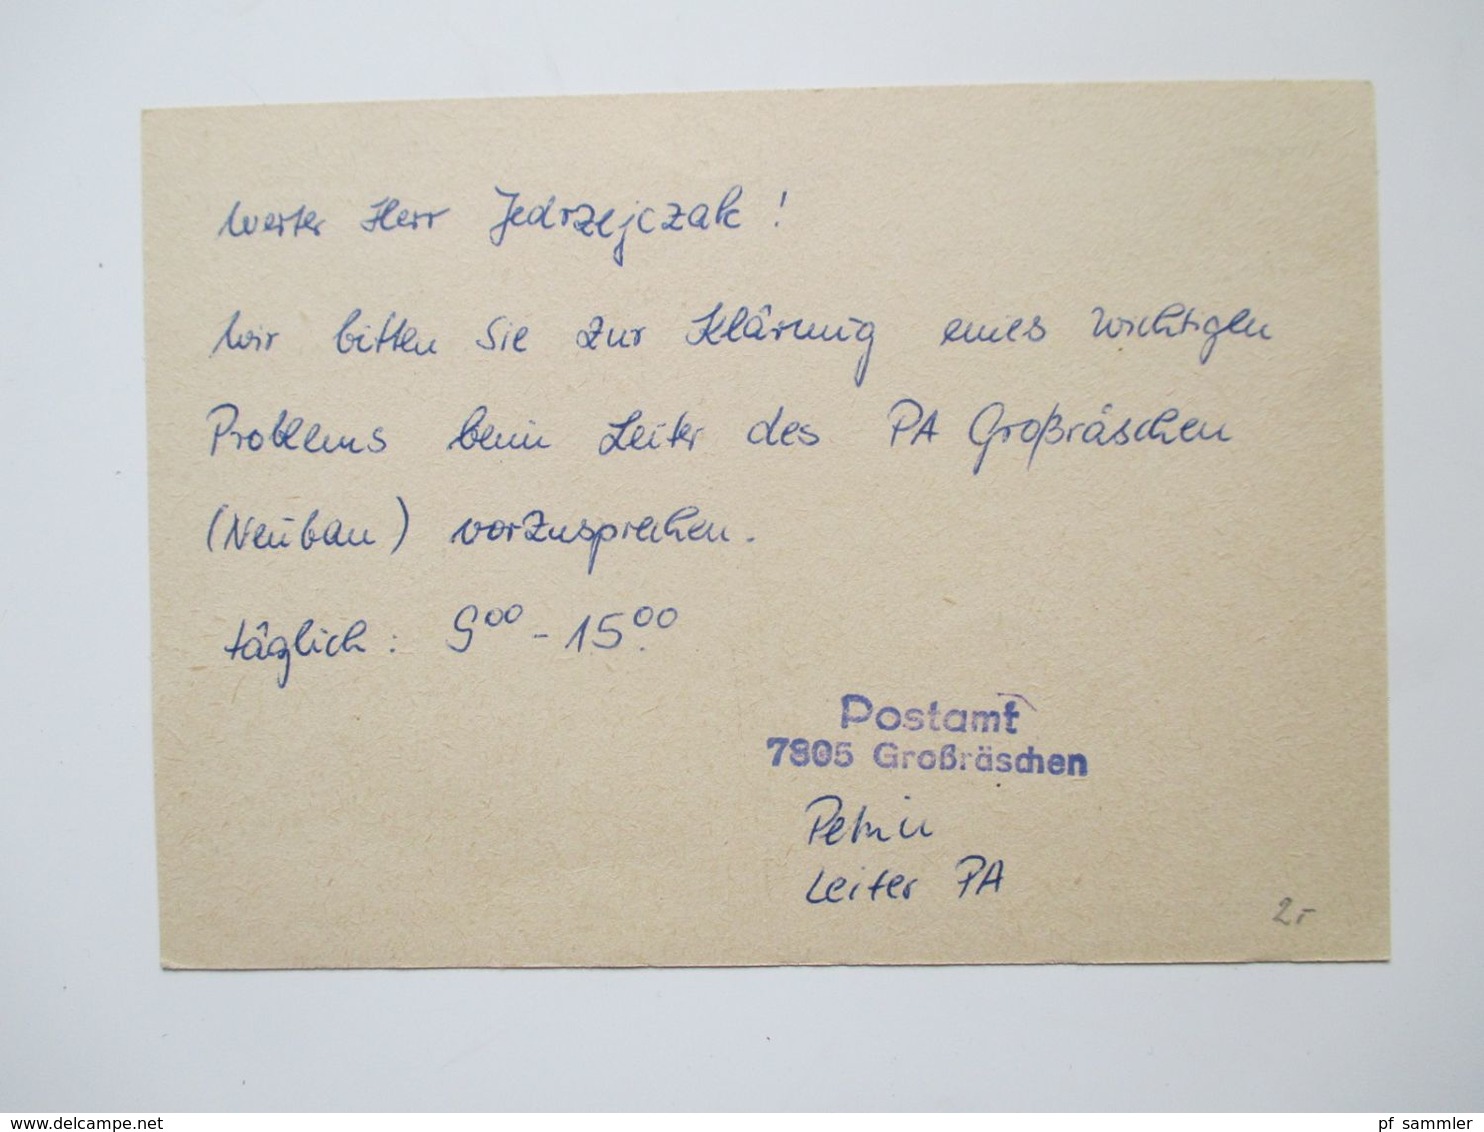 Werter Herr Jedrzejczak!
Wir bitten Sie zur Klärung eines wichtigen
Problems beim Leiter des PA Großräschen
(Neubau) vorzusprechen.
täglich: 9⁰⁰ - 15.⁰⁰
Postamt
7805 Großräschen
Leiter PA
2,-
www.delcampe.net
pf_sammler